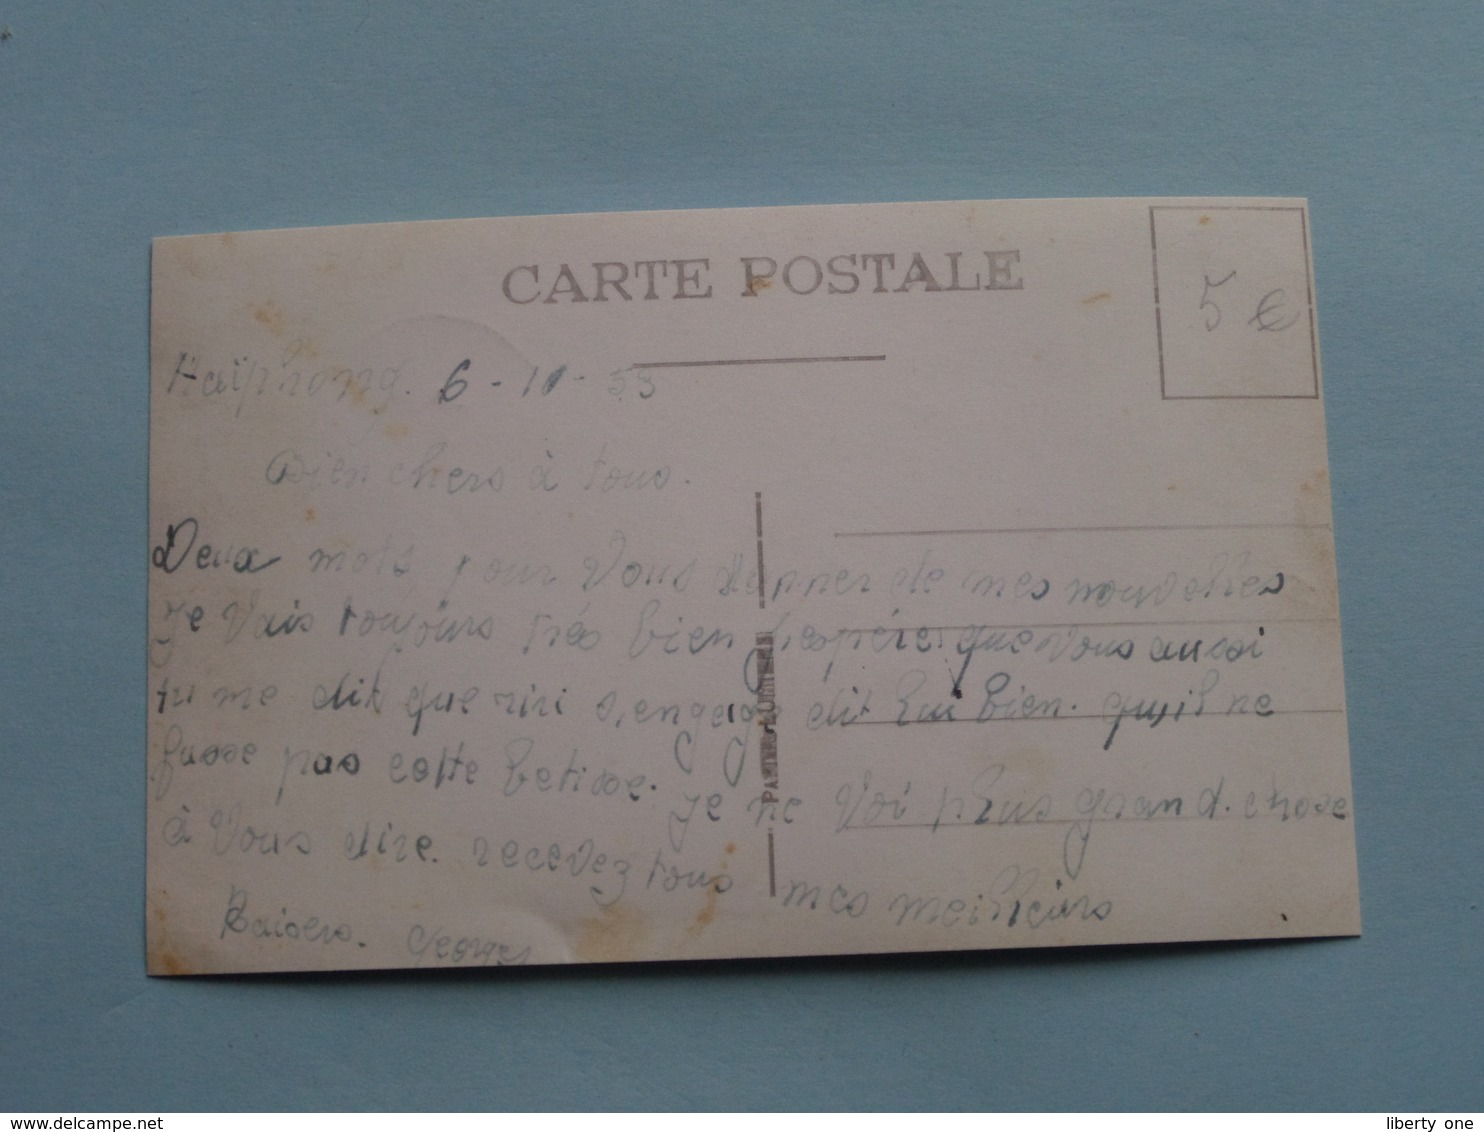 CARTE POSTALE
5 €
Haïphong. 6 - 11 - 53
Bien chers à tous.
Deux mots pour Vous donner de mes nouvelles
Je Vais toujours très bien j'espère que vous aussi
tu me dit que riri s'engage dit lui bien. qu'il ne
fasse pas cette betisse. Je ne Voi plus grand. chose
à Vous dire. recevez tous mes meilleurs
Baisers. Georges
www.delcampe.net
liberty_one